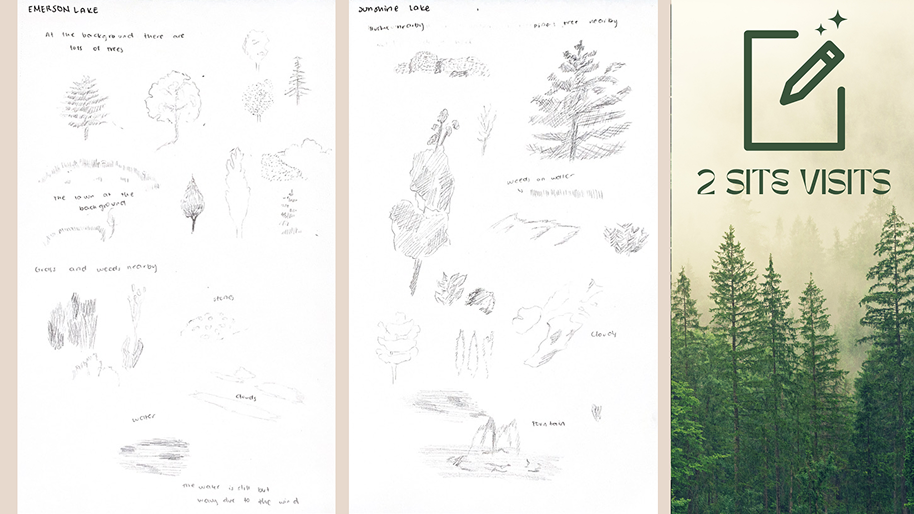 EMERSON LAKE
At the background there are
lots of trees
the lawn at the
background
Grass and weeds nearby
stones
clouds
water
the water is
wavy due to the wind
Sunshine lake
Bushes nearby
tree nearby
weeds on water
clouds
Fountain
2 SITE VISITS